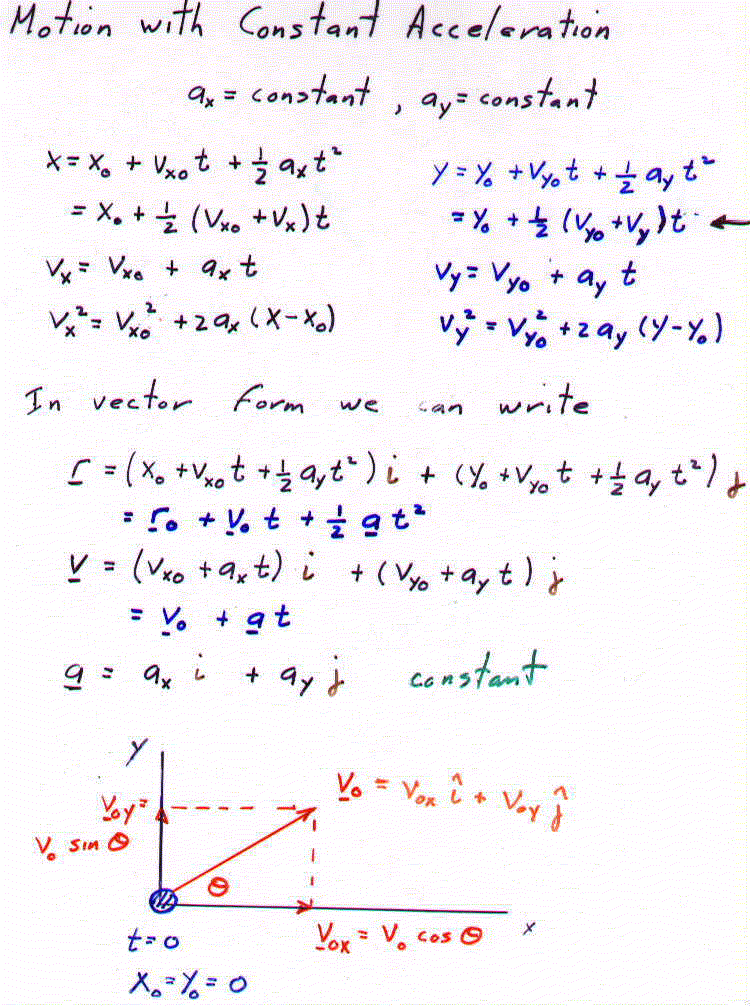 Motion with Constant Acceleration
aₓ = constant , a_y = constant
x = x₀ + v_x0 t + ½ a_x t²
= x₀ + ½ (v_x0 + v_x) t
v_x = v_x0 + a_x t
v_x² = v_x0² + 2 a_x (x - x₀)
y = y₀ + v_y0 t + ½ a_y t²
= y₀ + ½ (v_y0 + v_y) t ←
v_y = v_y0 + a_y t
v_y² = v_y0² + 2 a_y (y - y₀)
In vector form we can write
r = (x₀ + v_x0 t + ½ a_y t²) i + (y₀ + v_y0 t + ½ a_y t²) j
= r₀ + v₀ t + ½ a t²
v = (v_x0 + a_x t) i + (v_y0 + a_y t) j
= v₀ + a t
a = a_x i + a_y j constant
y
v_0y =
v₀ sin θ
v₀ = v_0x î + v_0y ĵ
θ
x
t = 0
v_0x = v₀ cos θ
x₀ = y₀ = 0